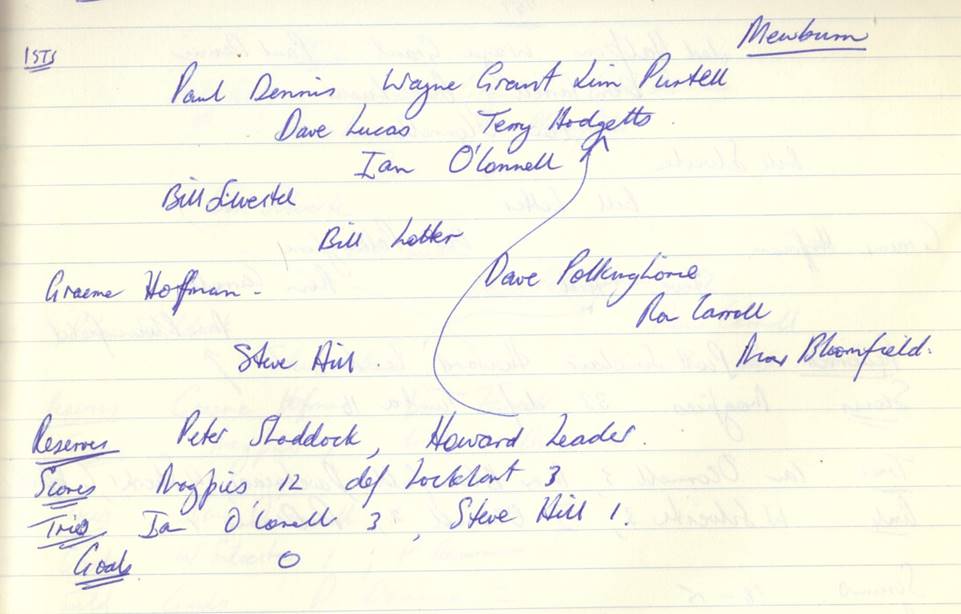 Mewburn
1STS
Paul Dennis, Wayne Grant Kim Purtell
Dave Lucas Terry Hodgetts
Ian O'Connell
Bill Silvester
Bill Lotter
Graeme Hoffman.
Dave Polkinghorne
Ron Carroll
Steve Hill
Max Bloomfield.
Reserves Peter Shaddock, Howard Leader.
Scores Magpies 12 def Lockhart 3
Tries Ian O'Connell 3, Steve Hill 1.
Goals 0